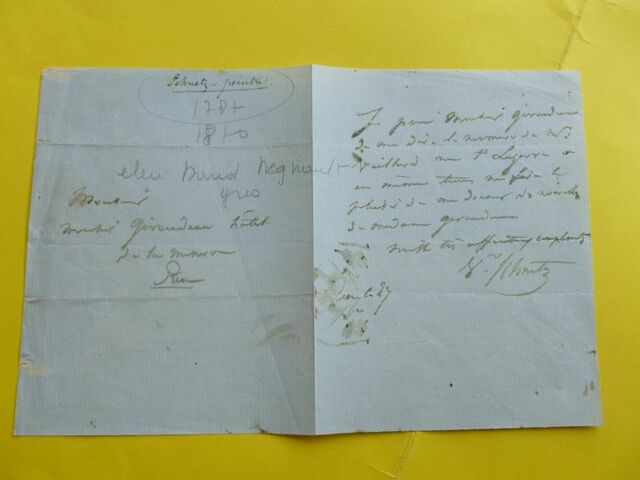 Schnetz - peintre
1787
1870
eleve David Regnault
gros
Monsieur
Monsieur Giraudeau hôtel
de la minerve
Rome
Je prie Monsieur Giraudeau
de me dire le numero de Mr
rue St Lazare &
en même tems me faire le
plaisir de me donner des nouvelles
de madame giraudeau
mille très affectueux compliments
Vr Schnetz